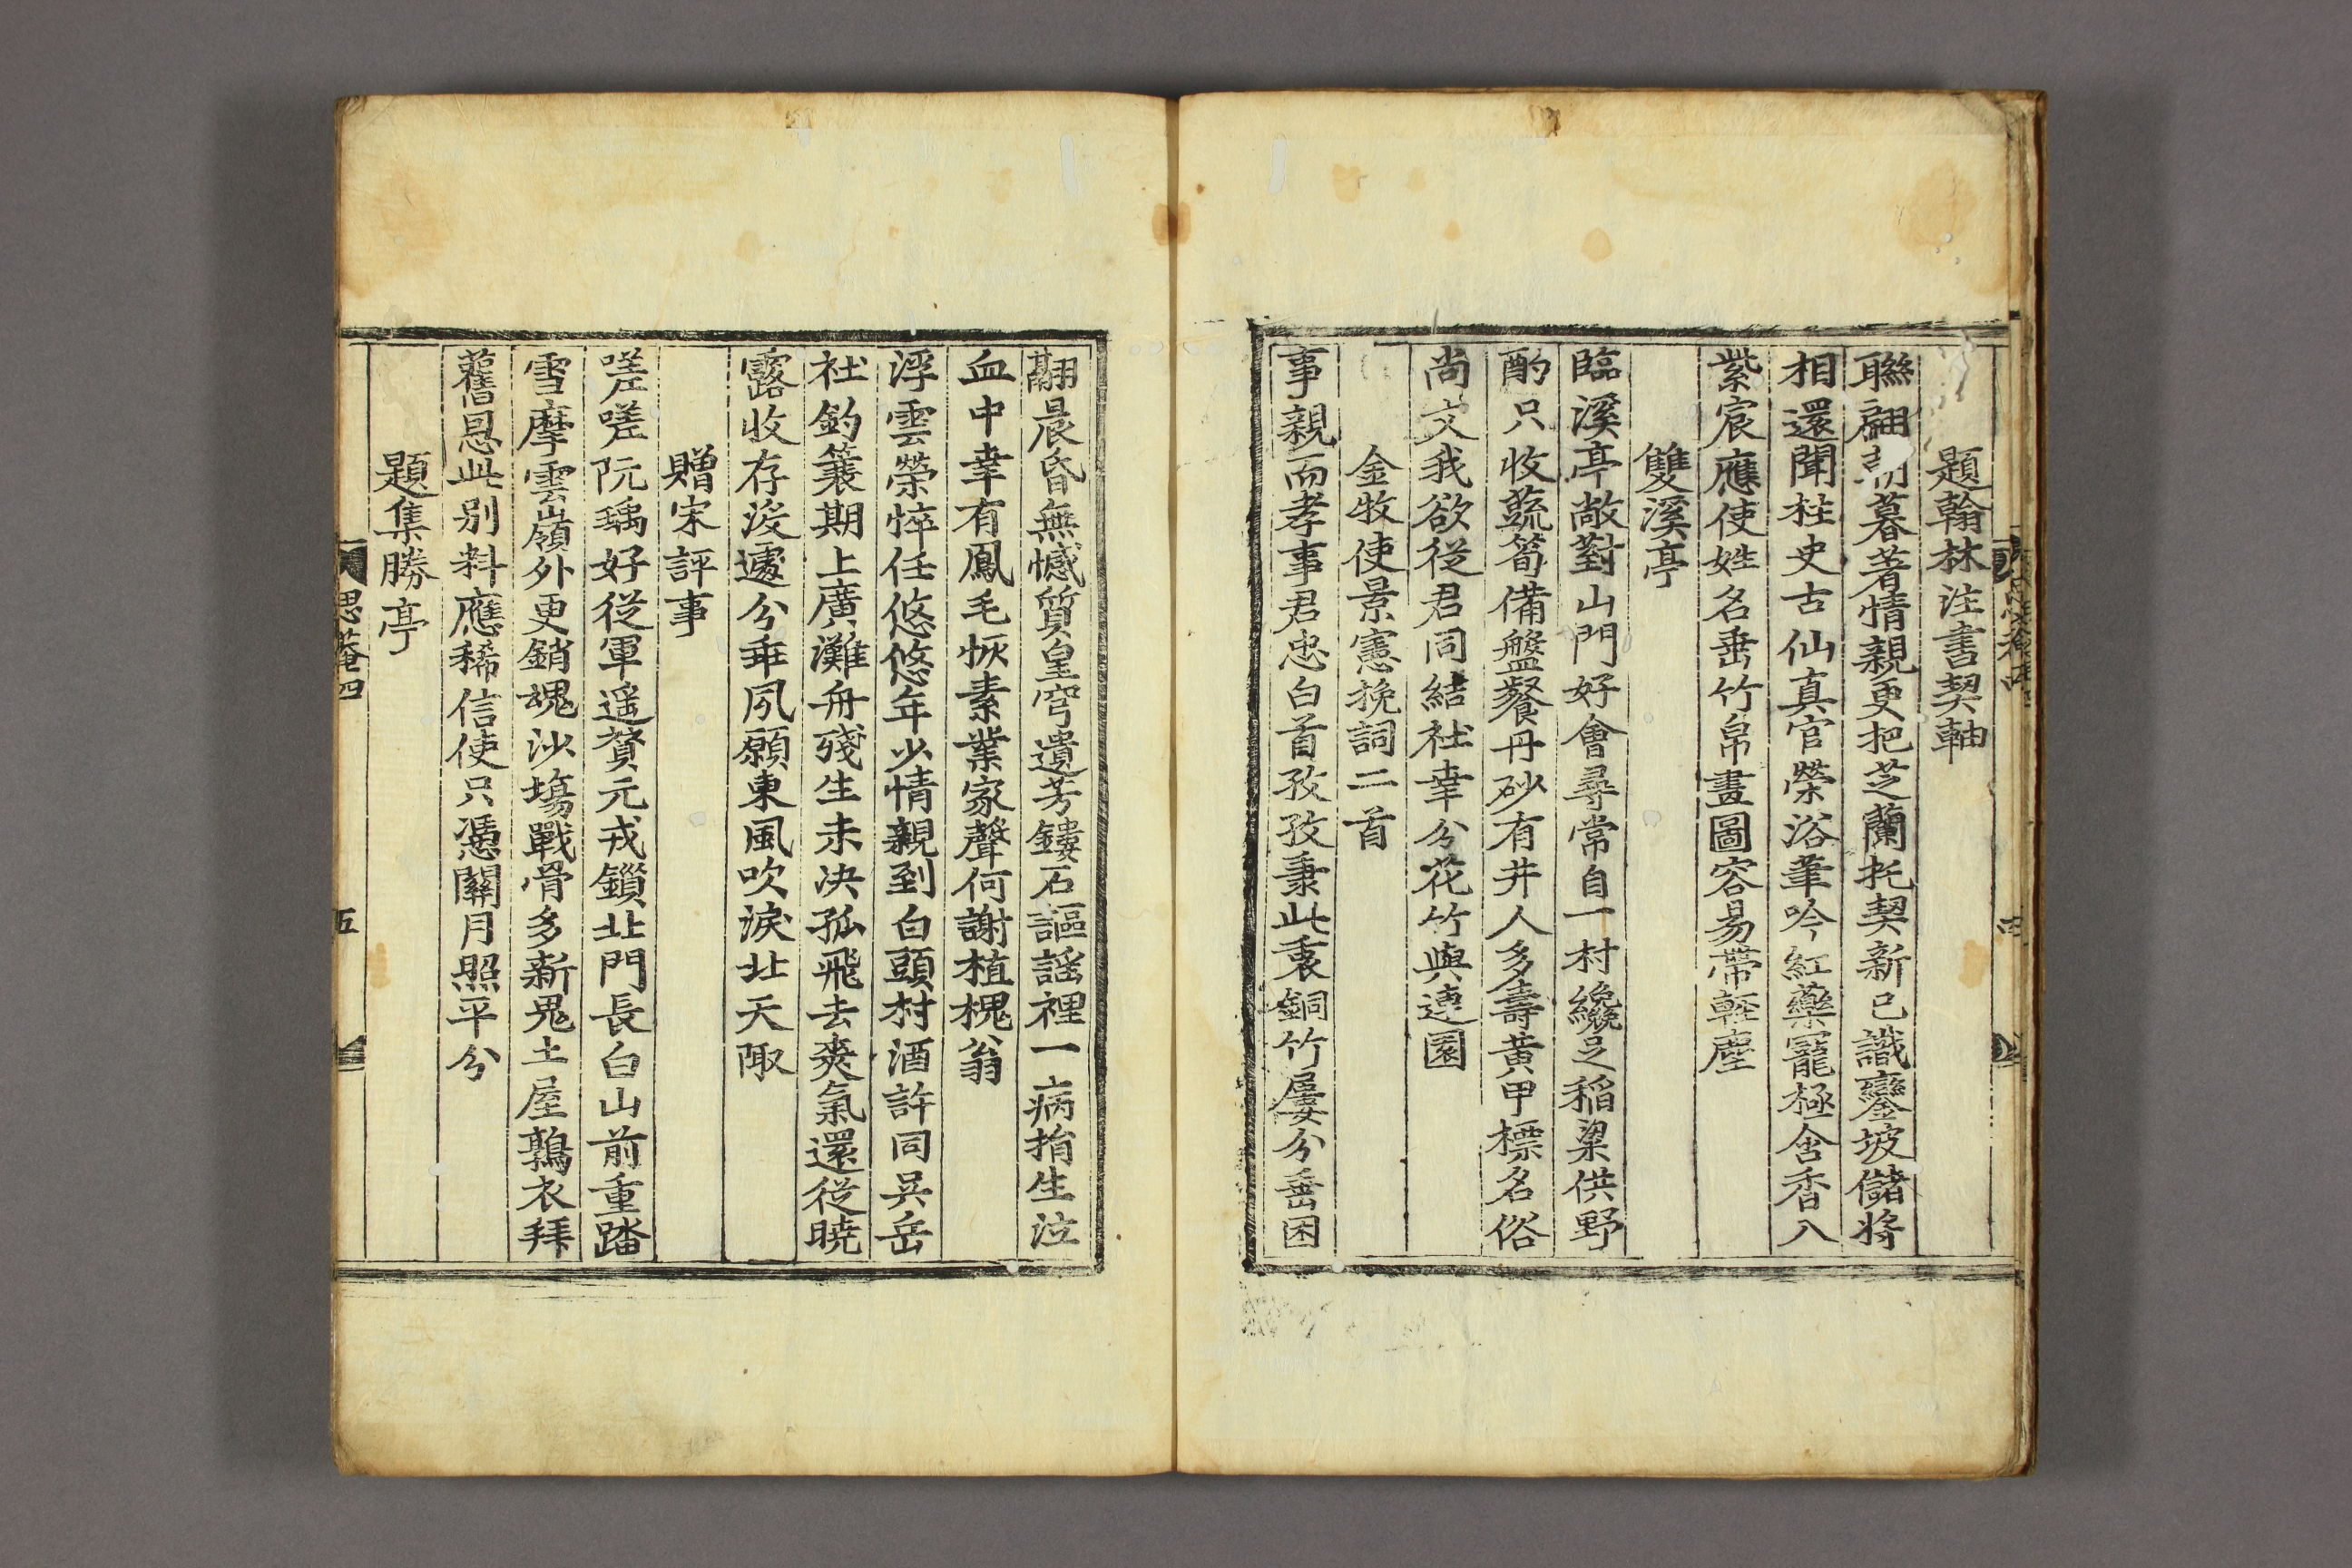 題翰林注書契軸
聯翩朝暮著情親更把芝蘭托契新已識鑾坡儲將
相還聞柱史古仙真官榮浴葦吟紅藥寵極含香入
紫宸應使姓名垂竹帛畫圖容易帶輕塵
雙溪亭
臨溪亭敞對山門好會尋常自一村纔足稲粱供野
酌只收蔬筍備盤餐丹砂有井人多壽黃甲標名俗
尚文我欲從君同結社幸分花竹與連園
金牧使景憲挽詞二首
事親而孝事君忠白首孜孜秉此衷銅竹屢分垂困
翮晨昏無憾質皇穹遺芳鏤石謳謠裡一病捐生泣
血中幸有鳳毛恢素業家聲何謝植槐翁
浮雲榮悴任悠悠年少情親到白頭村酒許同吳岳
社釣簑期上廣灘舟殘生未决孤飛去爽氣還從曉
露收存沒遽分乖夙願東風吹淚北天陬
贈宋評事
嗟嗟阮瑀好從軍遥賛元戎鎖北門長白山前重踏
雪摩雲嶺外更銷魂沙塲戰骨多新鬼土屋鶉衣拜
舊恩此別料應稀信使只憑關月照平分
題集勝亭
思菴四
五